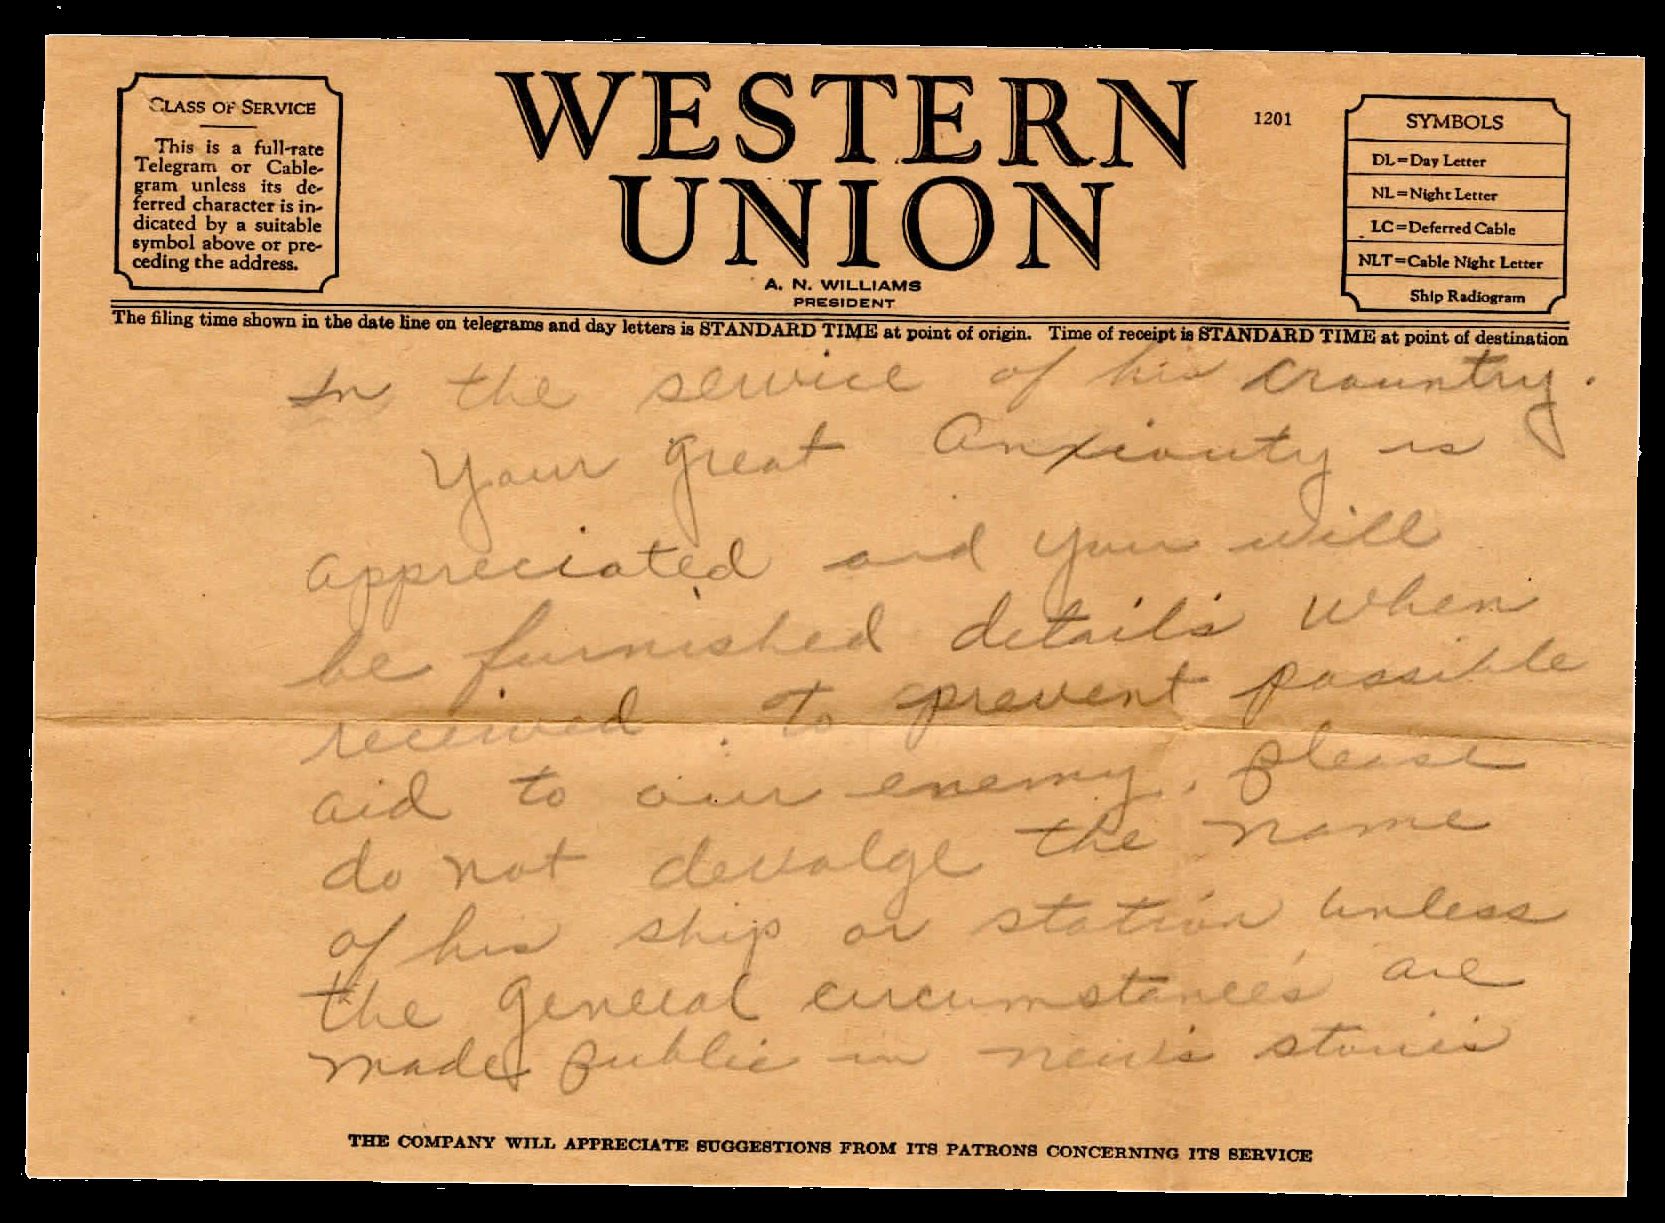 CLASS OF SERVICE
This is a full-rate
Telegram or Cable-
gram unless its de-
ferred character is in-
dicated by a suitable
symbol above or pre-
ceding the address.
WESTERN
UNION
1201
A. N. WILLIAMS
PRESIDENT
SYMBOLS
DL=Day Letter
NL=Night Letter
LC=Deferred Cable
NLT=Cable Night Letter
Ship Radiogram
The filing time shown in the date line on telegrams and day letters is STANDARD TIME at point of origin. Time of receipt is STANDARD TIME at point of destination
In the service of his crountry.
Your great Anxiouty is
appreciated and you will
be furnished details when
received. To prevent possible
aid to our enemy, please
do not devulge the name
of his ship or station unless
the general circumstances are
made public in news stories
THE COMPANY WILL APPRECIATE SUGGESTIONS FROM ITS PATRONS CONCERNING ITS SERVICE